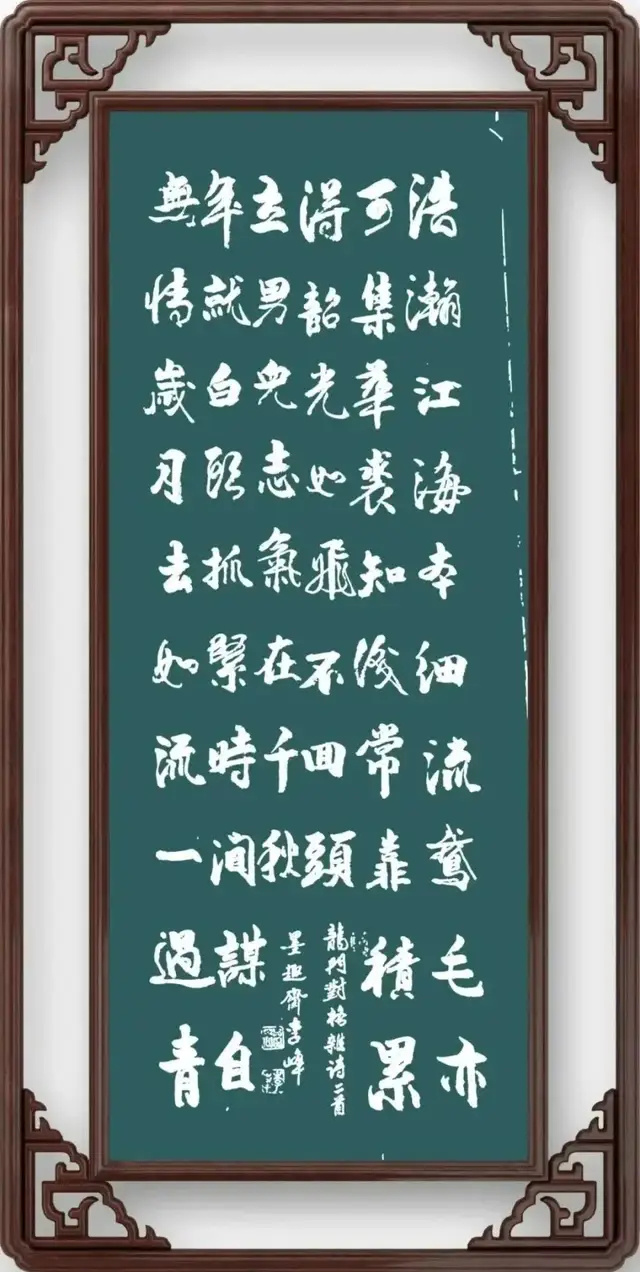 浩瀚江海本細流鵞毛亦
可集華裘知淺常靠積累
得韶光如飛不回頭
龍門對格雜诗二首
無情歲月去如流一過青
年就白頭抓緊時间謀自
立男兒志氣在千秋
墨趣齋李峰